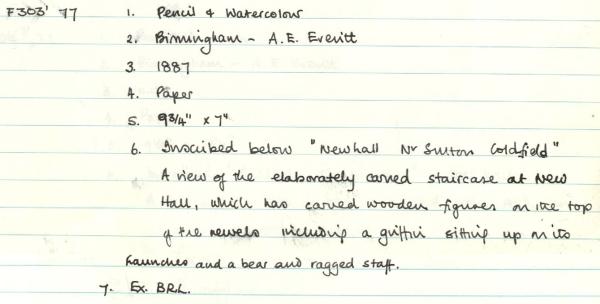 F303' 77 1. Pencil & Watercolour
2. Birmingham - A.E. Everitt
3. 1887
4. Paper
5. 9 3/4" x 7"
6. Inscribed below "Newhall Nr Sutton Coldfield"
A view of the elaborately carved staircase at New
Hall, which has carved wooden figures on the top
of the newels including a griffin sitting up on its
haunches and a bear and ragged staff.
7. Ex. BRL.